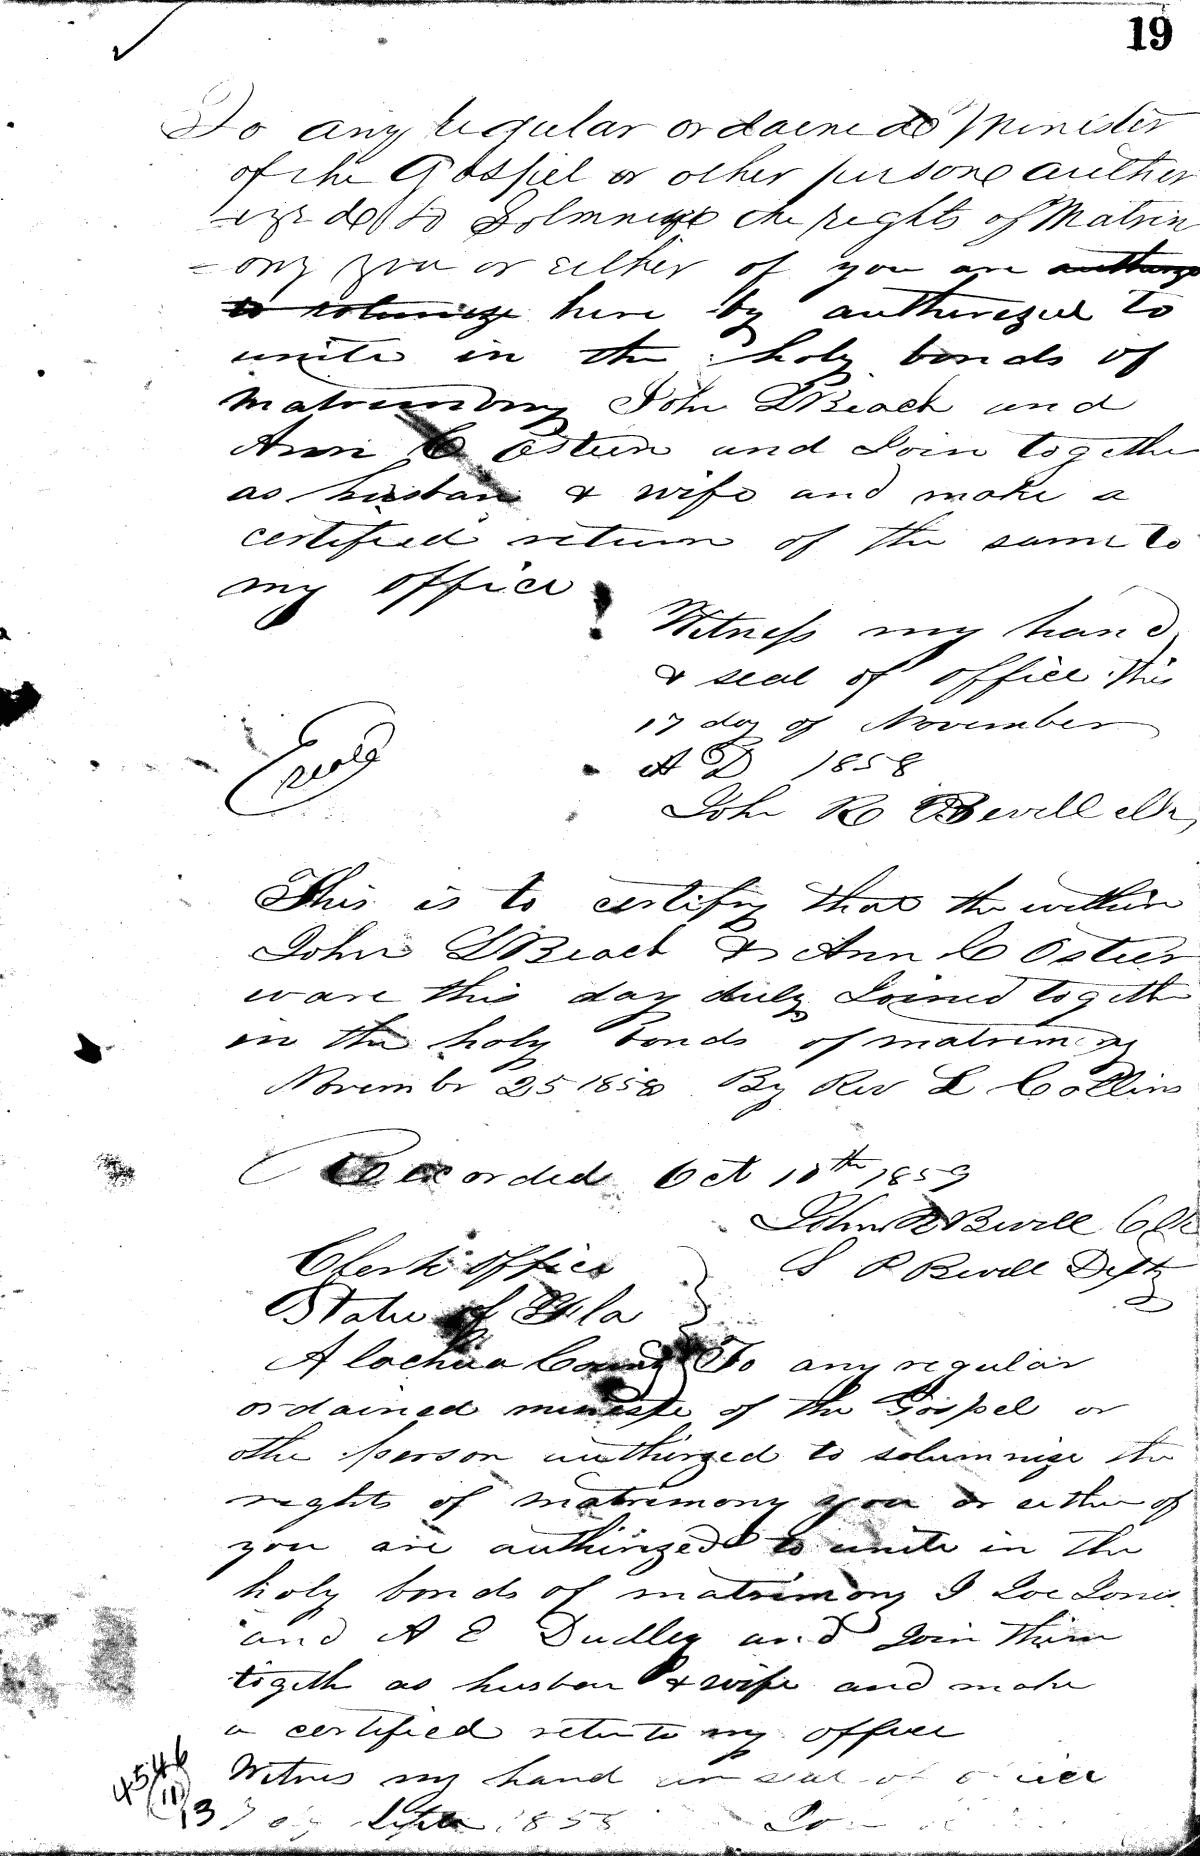 19
To any regular ordained Minister
of the Gospel or other persone auther
-ized to Solmnize the rights of Matrim
=ony you or either of you are authorize
to solumnize here by autherized to
unite in the holy bonds of
matrimony John L Beach and
Ann C Osteen and Join togethe
as husban & wife and make a
certified return of the same to
my office
Witness my hand
& seal of office this
17 day of November
A D 1858
Seal
John R Bevill Clk,
This is to certify that the within
John L Beach & Ann C Osteen
ware this day duly Joined togeth
in the holy bonds of matrimony
Novembr 25 1858 By Rev L Collins
Recorded Oct 10th 1859
John R Bevill Clk
S P Bevill Depty
Clerk office
State of Fla
Alachua County To any regular
ordained ministe of the Gospel or
othe person authirzed to solumnize the
rights of matrimony you or either of
you are authirized to unite in the
holy bonds of matrimony I
and A E Dudley and Join them
togeth as husban & wife and make
a certified retun to my office
Witnes my hand an seal of office
1858
4546
(11)
13